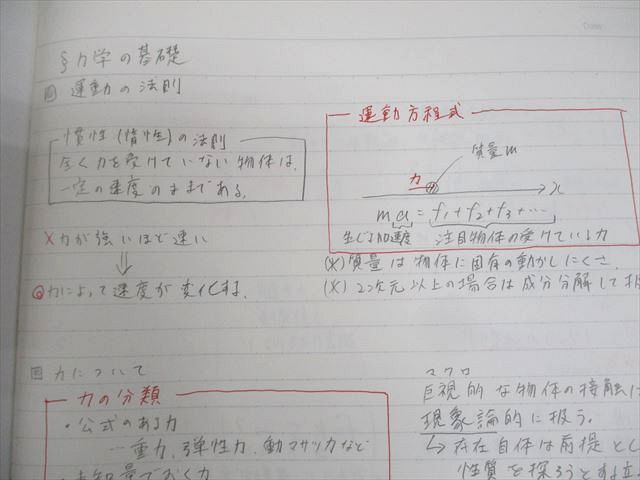 §力学の基礎
運動の法則
慣性(惰性)の法則
全く力を受けていない物体は、
一定の速度のままである。
×力が強いほど速い
⇓
◎力によって速度が変化する。
運動方程式
質量m
力
x
ma = f₁+f₂+f₃+…
生じる加速度 注目物体の受けている力
(※)質量は物体に固有の動かしにくさ
(※)2次元以上の場合は成分分解して
力について
力の分類
・公式のある力
―重力、弾性力、動マサツ力など
・未知量でおく力
マクロ
巨視的な物体の接触に
現象論的に扱う。
↳存在自体は前提とし
性質を探ろうとする立
Date